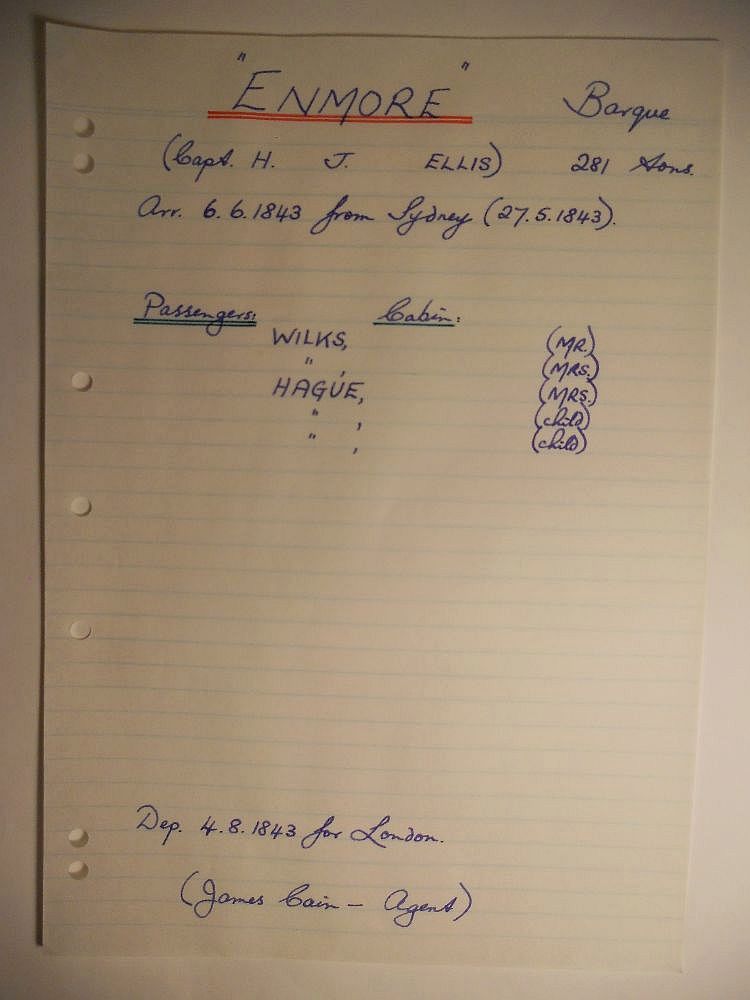 "ENMORE" Barque
(Capt. H. J. ELLIS) 281 Tons.
Arr. 6.6.1843 from Sydney (27.5.1843).
Passengers: Cabin:
WILKS, (MR.)
" , (MRS.)
HAGUE, (MRS.)
" , (child)
" , (child)
Dep. 4.8.1843 for London.
(James Cain - Agent)